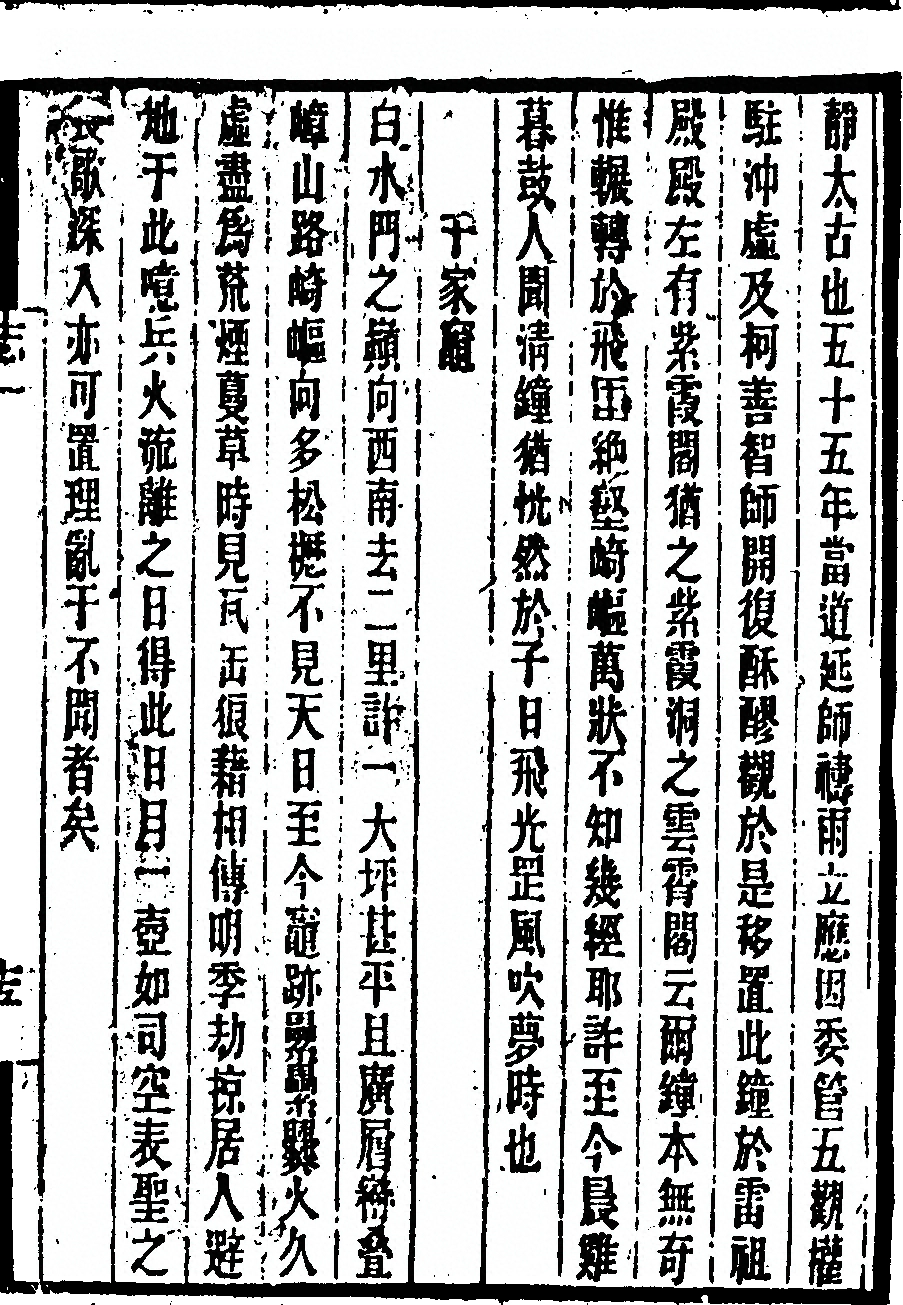 靜太古也五十五年當道延師禱雨立應因委管五觀權
駐沖虛及柯善智師開復酥醪觀於是移置此鐘於雷祖
殿殿左有紫霞閣猶之紫霞洞之雲霄閣云爾鐘本無奇
惟輾轉於飛厓絶壑崎嶇萬狀不知幾經耶許至今晨雞
暮鼓人聞清鐘猶恍然於子日飛光罡風吹夢時也
千家竈
白水門之巔向西南去二里許一大坪甚平且廣層巒叠
嶂山路崎嶇向多松櫪不見天日至今竈跡纍纍爨火久
虛盡爲荒煙蔓草時見瓦缶狼藉相傳明季劫掠居人避
地于此噫兵火流離之日得此日月一壺如司空表聖之
長歌深入亦可置理亂于不聞者矣
志一